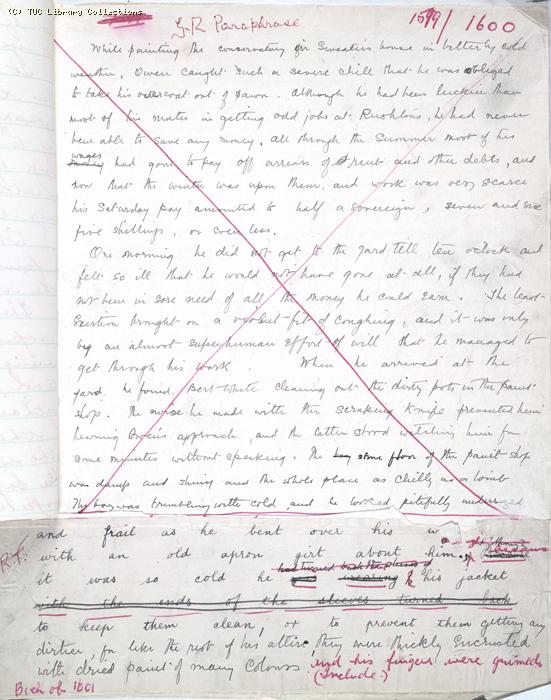 (C) TUC Library Collections
G.R Paraphrase
1599/1600
While painting the conservatory in Sweater's house in bitterly cold
weather, Owen caught such a severe chill that he was obliged
to take his overcoat out of pawn. Although he had been luckier than
most of his mates in getting odd jobs at Rushtons, he had never
been able to save any money. All through the Summer most of his
wages had gone to pay off arrears of rent and other debts, and
now that the winter was upon them, and work was very scarce
his Saturday pay amounted to half a sovereign, seven and six
five shillings, or even less.
One morning he did not get to the yard till ten oclock and
felt so ill that he would not have gone at all, if they had
not been in sore need of all the money he could earn. The least
Exertion brought on a violent fit of coughing, and it was only
by an almost superhuman effort of will that he managed to
get through his work. When he arrived at the
yard he found Bert White cleaning out the dirty pots in the paint
shop. The noise he made with the scraping knife prevented him
hearing Owens approach, and the latter stood watching him for
some minutes without speaking. The stone floor of the paint shop
was damp and shiny and the whole place as chilly as a tomb
The boy was trembling with cold, and he looked pitifully undersized
and frail as he bent over his
R.T.
with an old apron girt about him.
had turned back the sleeves of
it was so cold he wearing his jacket
with the ends of the sleeves turned back
to keep them clean, or to prevent them getting any
dirtier, for like the rest of his attire they were thickly Encrusted
with dried paint of many colours and his fingers were
(include.)
Back of 1601